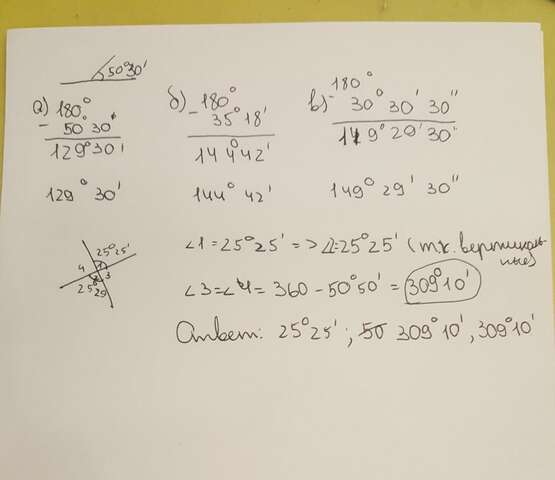 50°30'
а) 180°
- 50° 30'
129°30'
129° 30'
б) - 180°
35° 18'
144°42'
144° 42'
в) - 180°
30° 30' 30"
149° 29' 30"
149° 29' 30"
25°25'
4 1 3
2
25 25
∠1 = 25°25' => ∠2=25°25' (т.к. вертикаль-
ные)
∠3=∠4= 360 - 50°50' = 309°10'
Ответ: 25°25'; 50 309°10', 309°10'